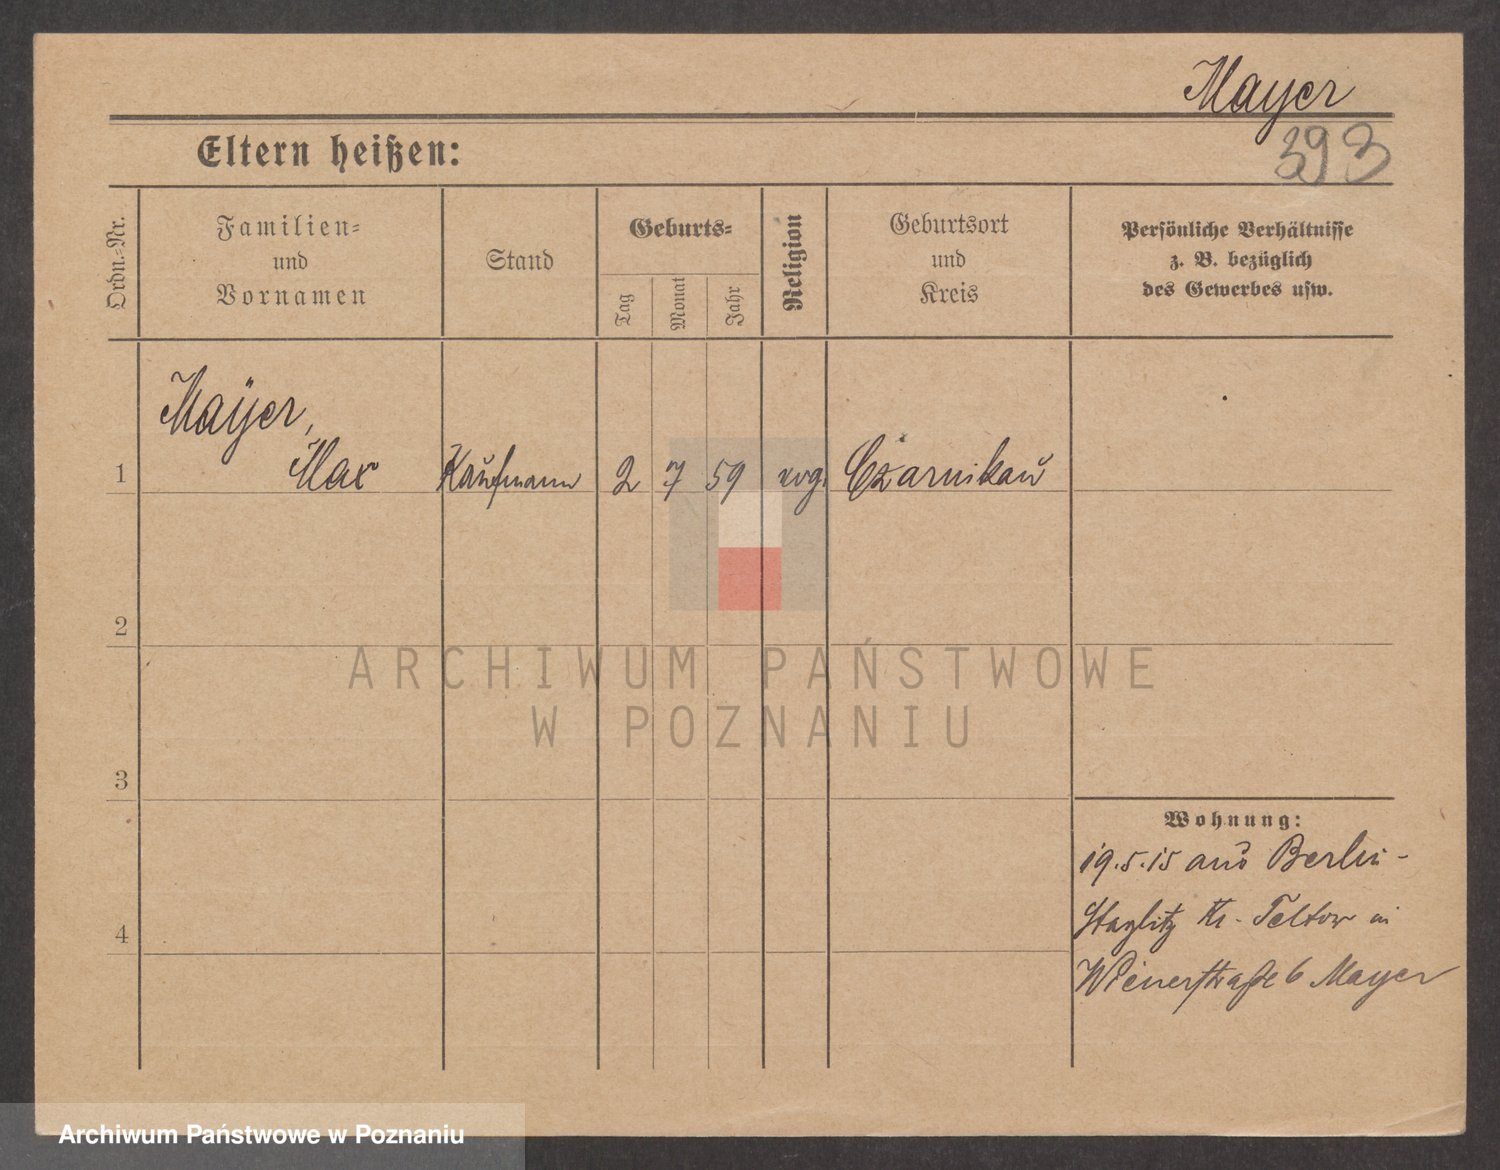 Mayer
393
Eltern heißen:
Ordn.=Nr.
Familien=
und
Vornamen
Stand
Geburts=
Tag
Monat
Jahr
Religion
Geburtsort
und
Kreis
Persönliche Verhältnisse
z. B. bezüglich
des Gewerbes usw.
Mayer,
1 Max Kaufmann 2 7 59 evg. Czarnikau
2
ARCHIWUM PAŃSTWOWE
W POZNANIU
3
Wohnung:
19.5.15 aus Berlin-
Steglitz Kr. Teltow in
4
Wienerstraße 6 Mayer
Archiwum Państwowe w Poznaniu